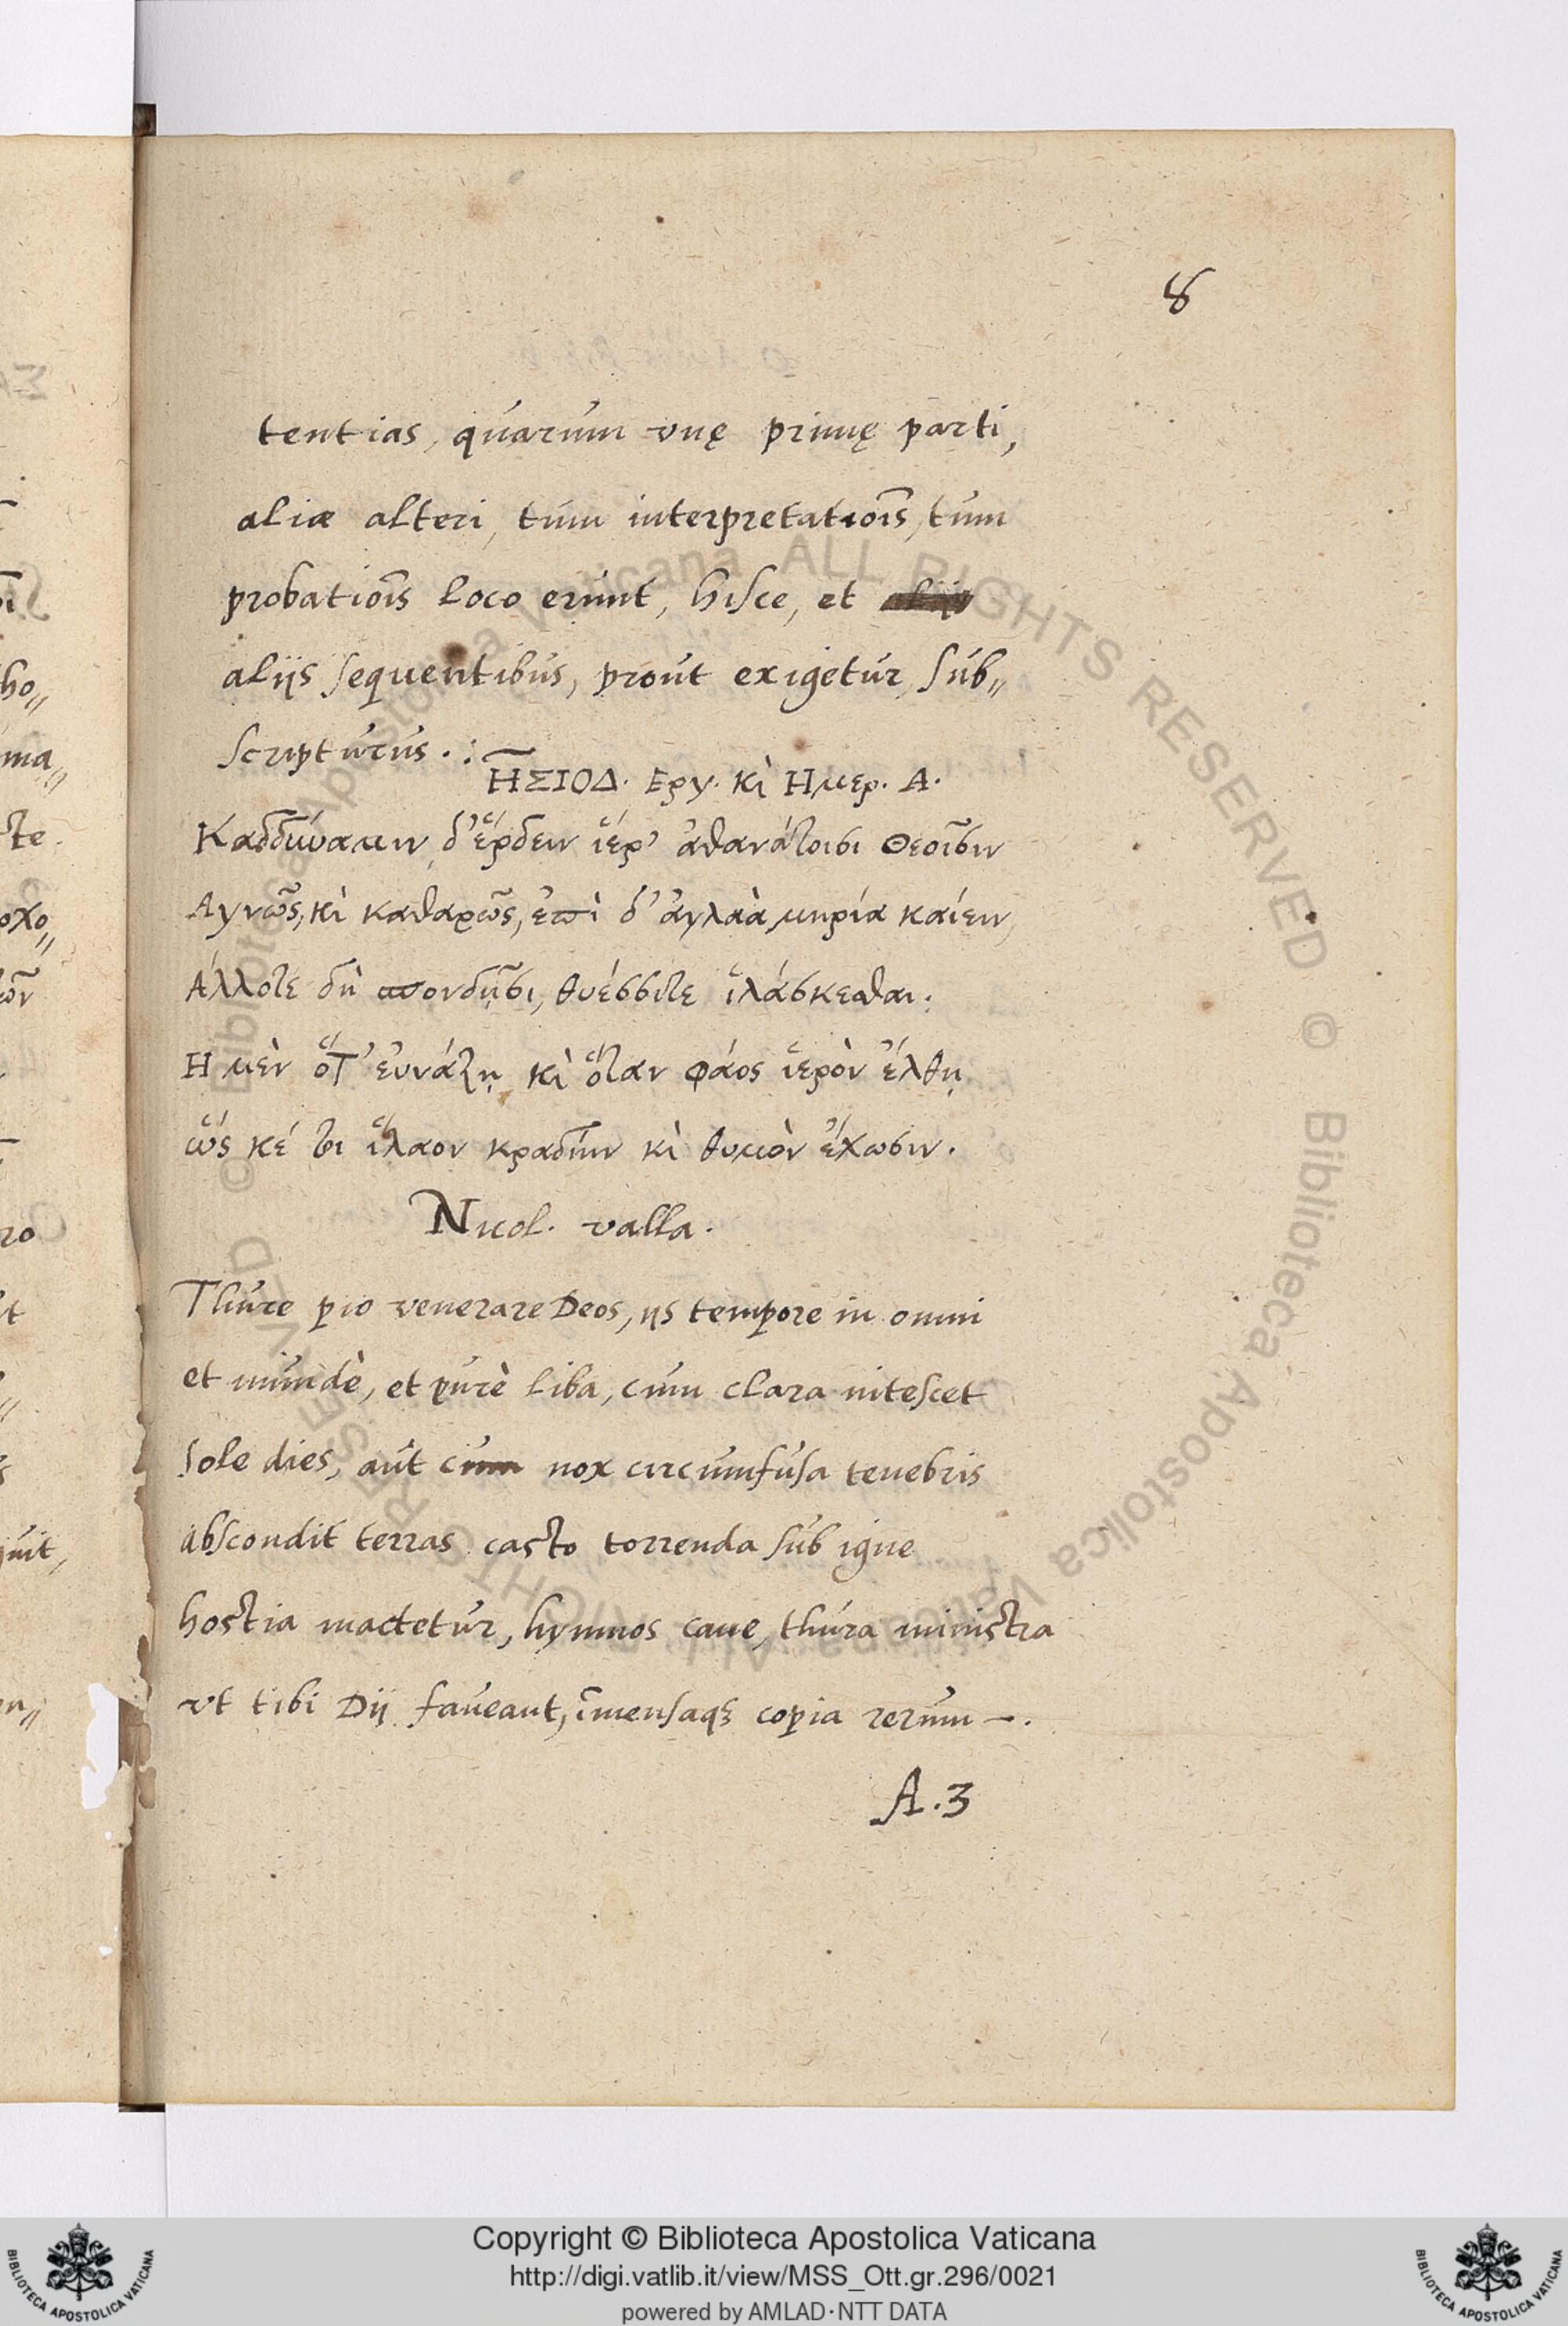 8
tentias, quarum vnę primę parti,
aliæ alteri, tùm interpretatiõis, tùm
probatiõis loco erunt, hisce, et
aliis sequentibus, prout exigetur, sub„
scripturus.:
ΗΣΙΟΔ. Εργ. κὶ Ημερ. Α.
Καδδύναμιν δ᾽ ἕρδειν ἱέρ᾽ ἀθανάτοισι Θεοῖσιν
Αγνῶς, κὶ καθαρῶς, ἐπὶ δ᾽ ἀγλαὰ μηρία καίειν,
Άλλοτε δὴ σπονδῇσι, θυέσσιτε ἱλάσκεσθαι.
Η μὲν ὅτ᾽ εὐνάζῃ κὶ ὅταν φάος ἱερὸν ἔλθῃ
ὥς κέ τοι ἵλαον κραδίην κὶ θυμὸν ἔχωσιν.
Nicol. valla.
Thure pio venerare Deos, iis tempore in omni
et mundè, et purè liba, cum clara nitescet
sole dies, aut cum nox circumfusa tenebris
abscondit terras casto torrenda sub igne
hostia mactetur, hymnos cane, thura ministra
vt tibi Dij faueant, ĩmensaqȝ copia rerum —.
A.3
ho„
ma„
te.
οχο„
ῶν
ro
quit,
Copyright © Biblioteca Apostolica Vaticana
http://digi.vatlib.it/view/MSS_Ott.gr.296/0021
powered by AMLAD·NTT DATA
BIBLIOTECA APOSTOLICA VATICANA
BIBLIOTECA APOSTOLICA VATICANA
© Biblioteca Apostolica Vaticana ALL RIGHTS RESERVED © Biblioteca Apostolica Vaticana ALL RIGHTS RESERVED